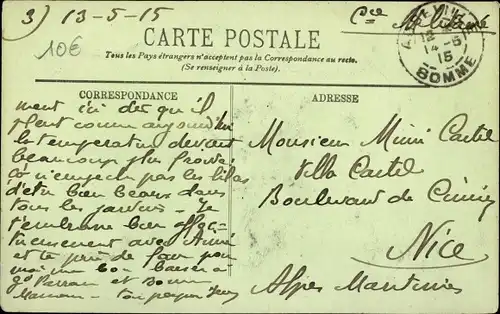 3) 13-5-15
Cce Militaire
10€
CARTE POSTALE
Tous les Pays étrangers n'acceptent pas la Correspondance au recto.
(Se renseigner à la Poste).
12
14-5
15
SOMME
CORRESPONDANCE
ment ici dès qu'il
pleut comme aujourd'hui
la température devient
beaucoup plus
les lilas
d'être bien beaux dans
tous les jardins - Je
t'embrasse bien affec-
tueusement avec Aimé
et te prie de faire pour
moi un bon baiser à
gd Parrain et Bonne
Maman - ton
ADRESSE
Monsieur Mimi Castel
Villa Castel
Boulevard de Cimiez
Nice
Alpes Maritimes